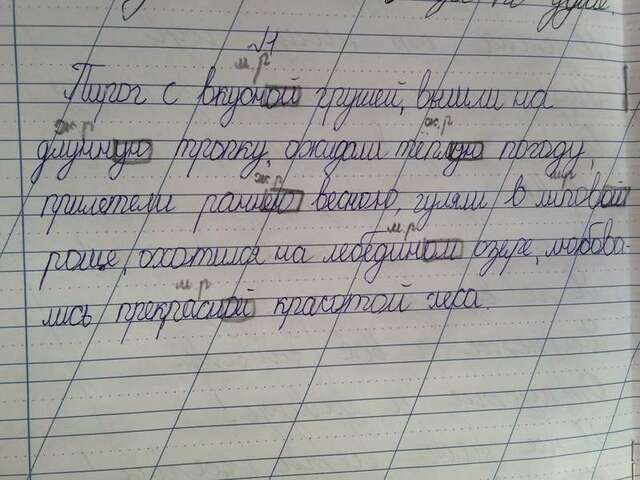 но душе.
√1
м.р
Пирог с вкусной грушей, вышли на
ж.р ж.р
длинную тропку, ожидали тёплую погоду,
ж.р м.р
прилетели раннею весною, гуляли в липовой
м.р
роще, охотился на лебедином озере, любова-
м.р
лись прекрасной красотой леса.